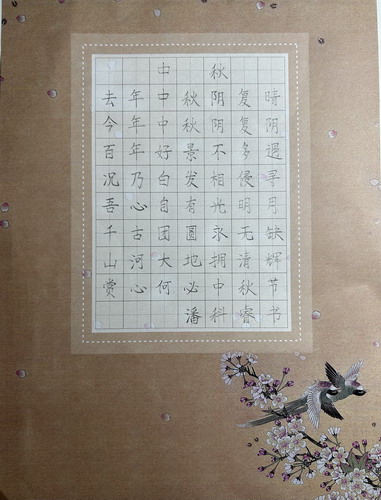 中秋
去年中秋阴复晴
今年中秋阴复阴
百年好景不多遇
况乃白发相侵寻
吾心自有光明月
千古团圆永无缺
山河大地拥清辉
赏心何必中秋节
潘科睿书